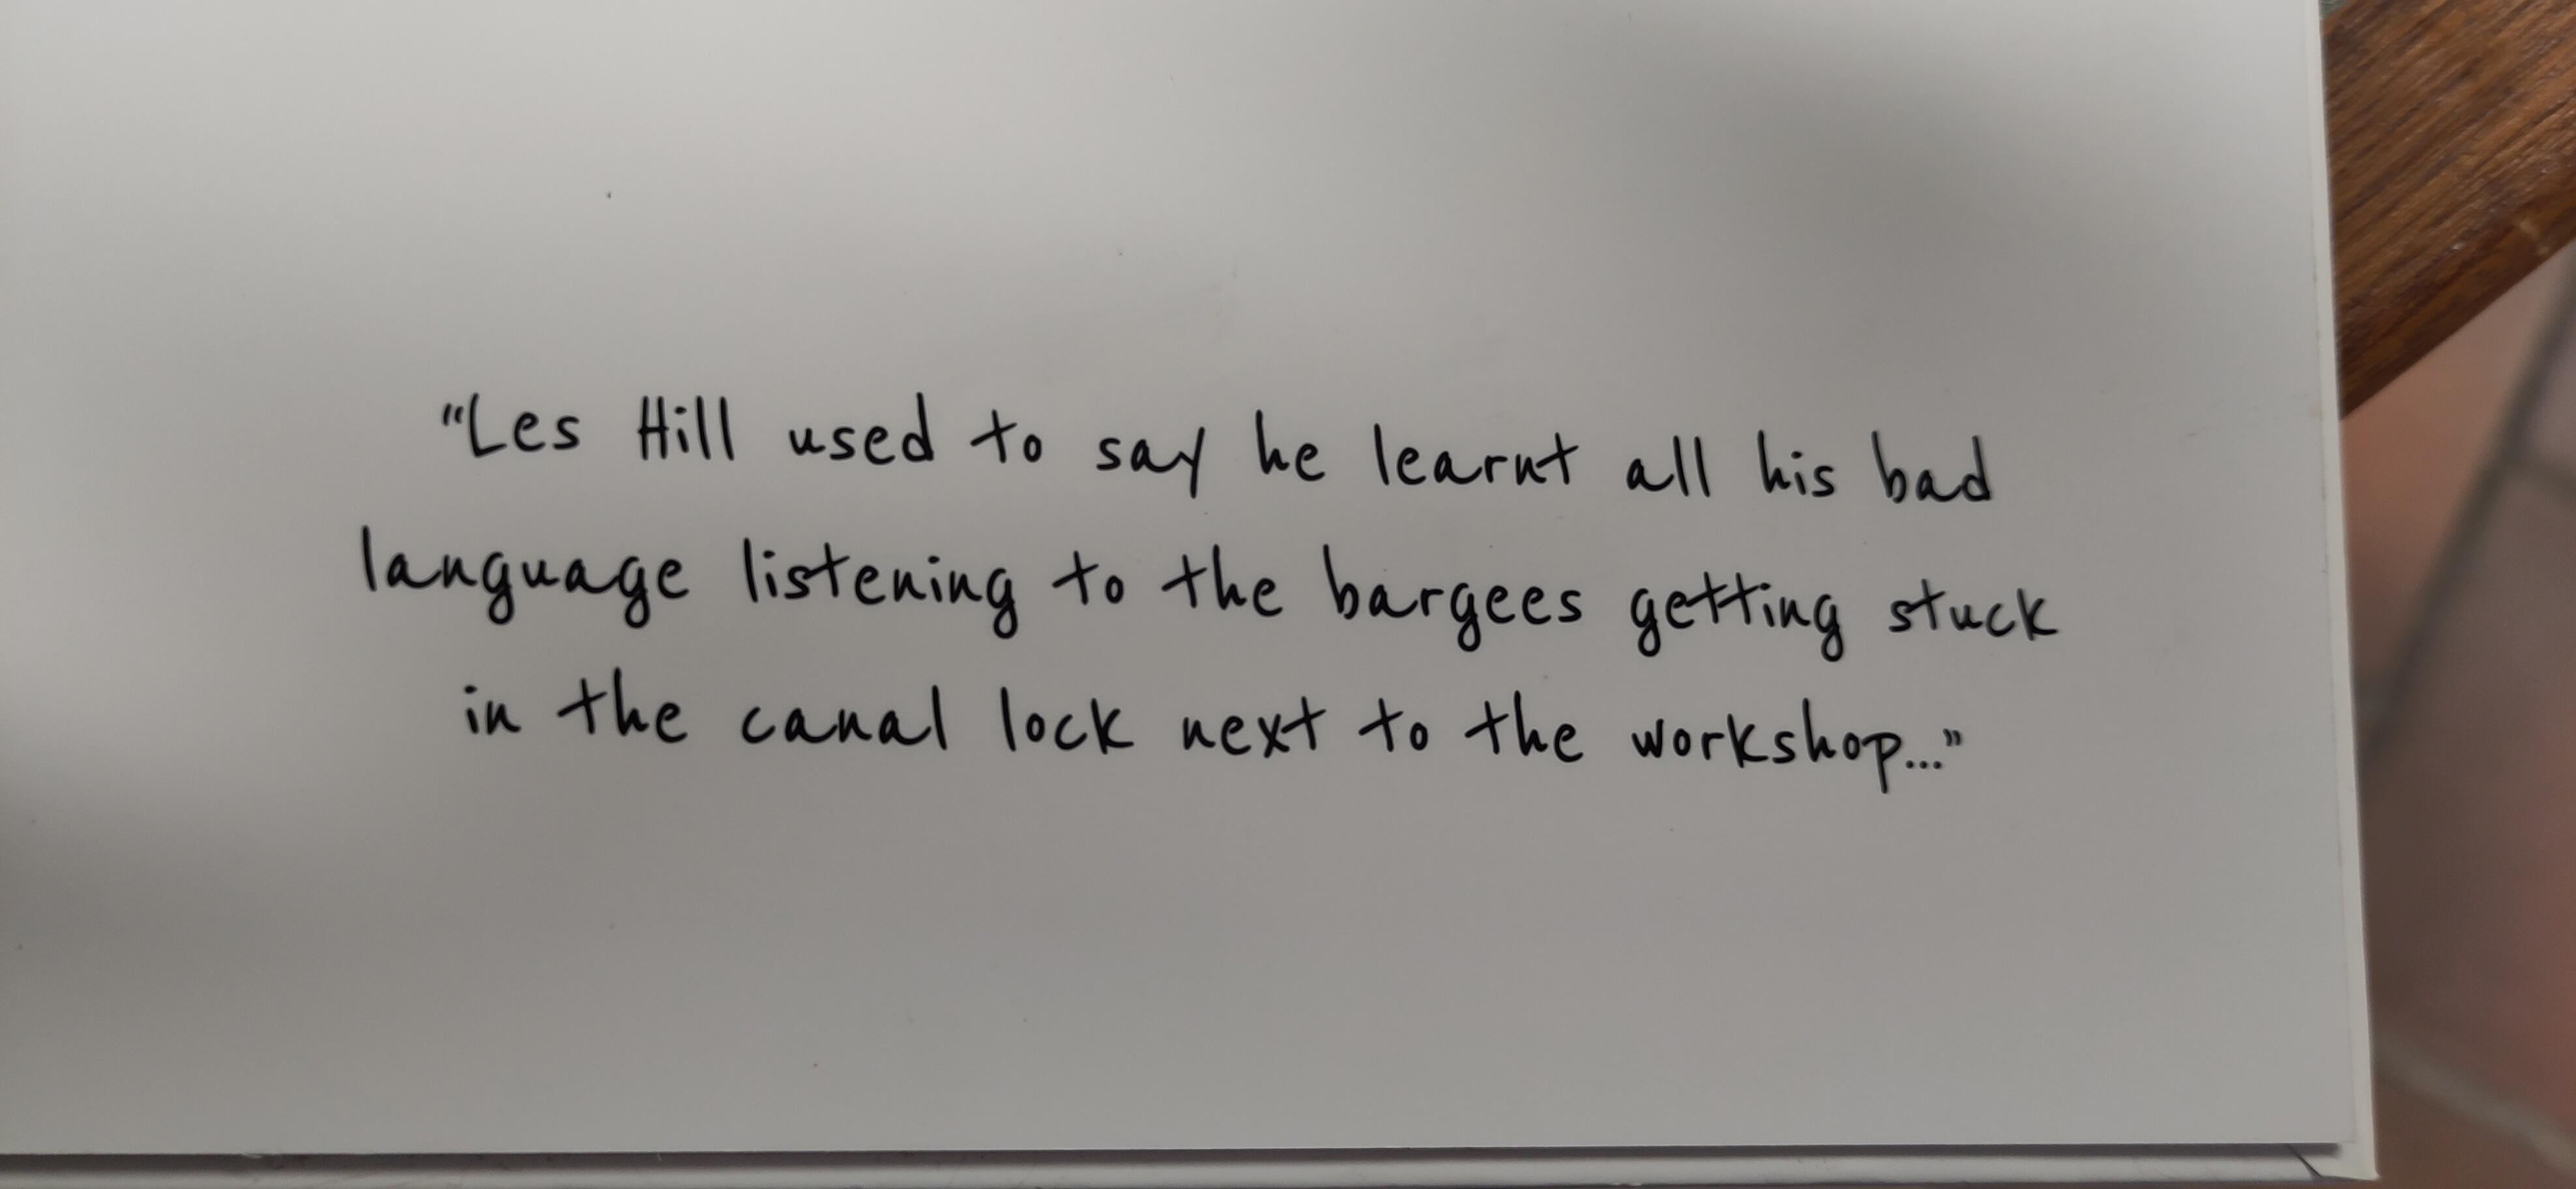 "Les Hill used to say he learnt all his bad
language listening to the bargees getting stuck
in the canal lock next to the workshop..."